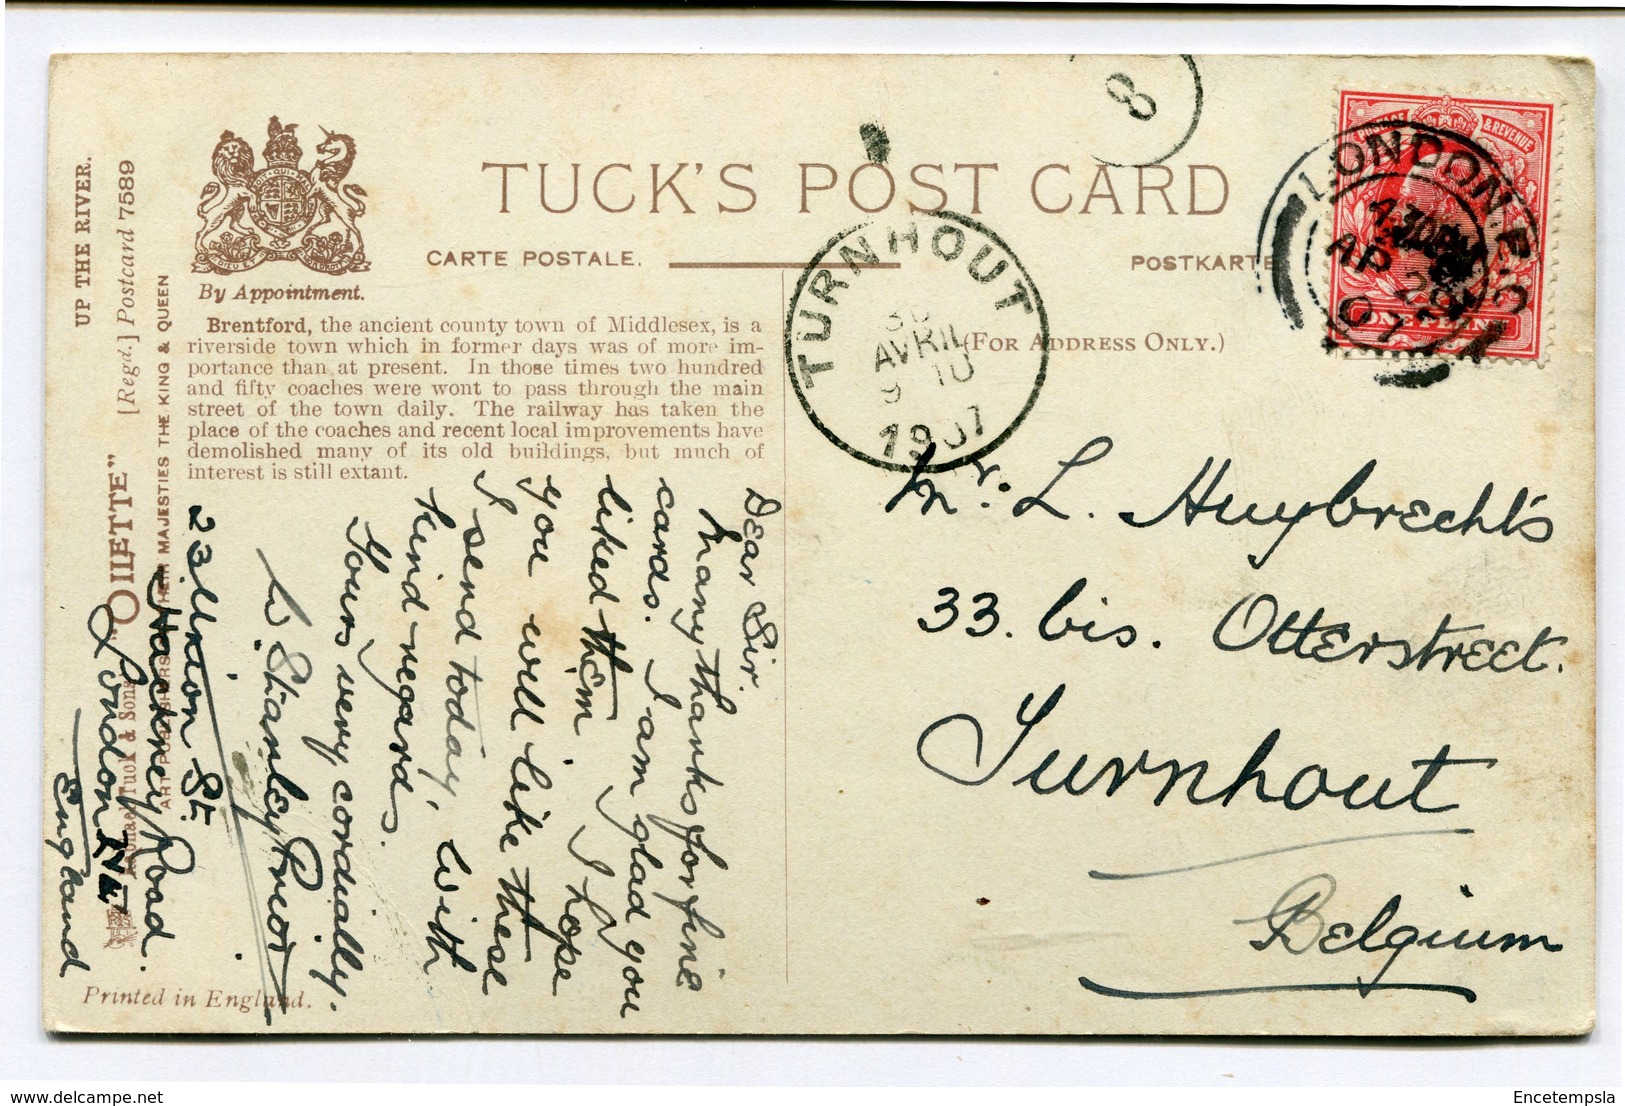 TUCK'S POST CARD
CARTE POSTALE.
POSTKARTE
(FOR ADDRESS ONLY.)
By Appointment.
Brentford, the ancient county town of Middlesex, is a
riverside town which in former days was of more im-
portance than at present. In those times two hundred
and fifty coaches were wont to pass through the main
street of the town daily. The railway has taken the
place of the coaches and recent local improvements have
demolished many of its old buildings, but much of
interest is still extant.
UP THE RIVER.
[Regd.] Postcard 7589
"OILETTE"
Raphael Tuck & Sons
ART PUBLISHERS THEIR MAJESTIES THE KING & QUEEN
Printed in England.
8
TURNHOUT
30
AVRIL
9 10
1907
LONDON. E.C
AP 29
07
POSTAGE & REVENUE
ONE PENNY
Dear Sir.
Many thanks for fine
cards. I am glad you
liked them. I hope
you will like these
I send today, with
kind regards.
Yours very cordially.
W. Stanley Prior
23 Union St.
Hackney Road.
London
England
Mr. L. Huybrechts
33. bis. Otterstreet.
Turnhout
Belgium
delcampe.net
Encetempsla